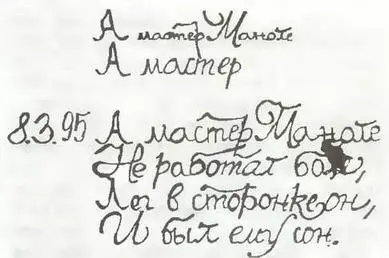 А мастер Маноле
А мастер
8.3.95 А мастер Маноле
Не работал боле,
Лег в сторонке он,
И был ему сон.